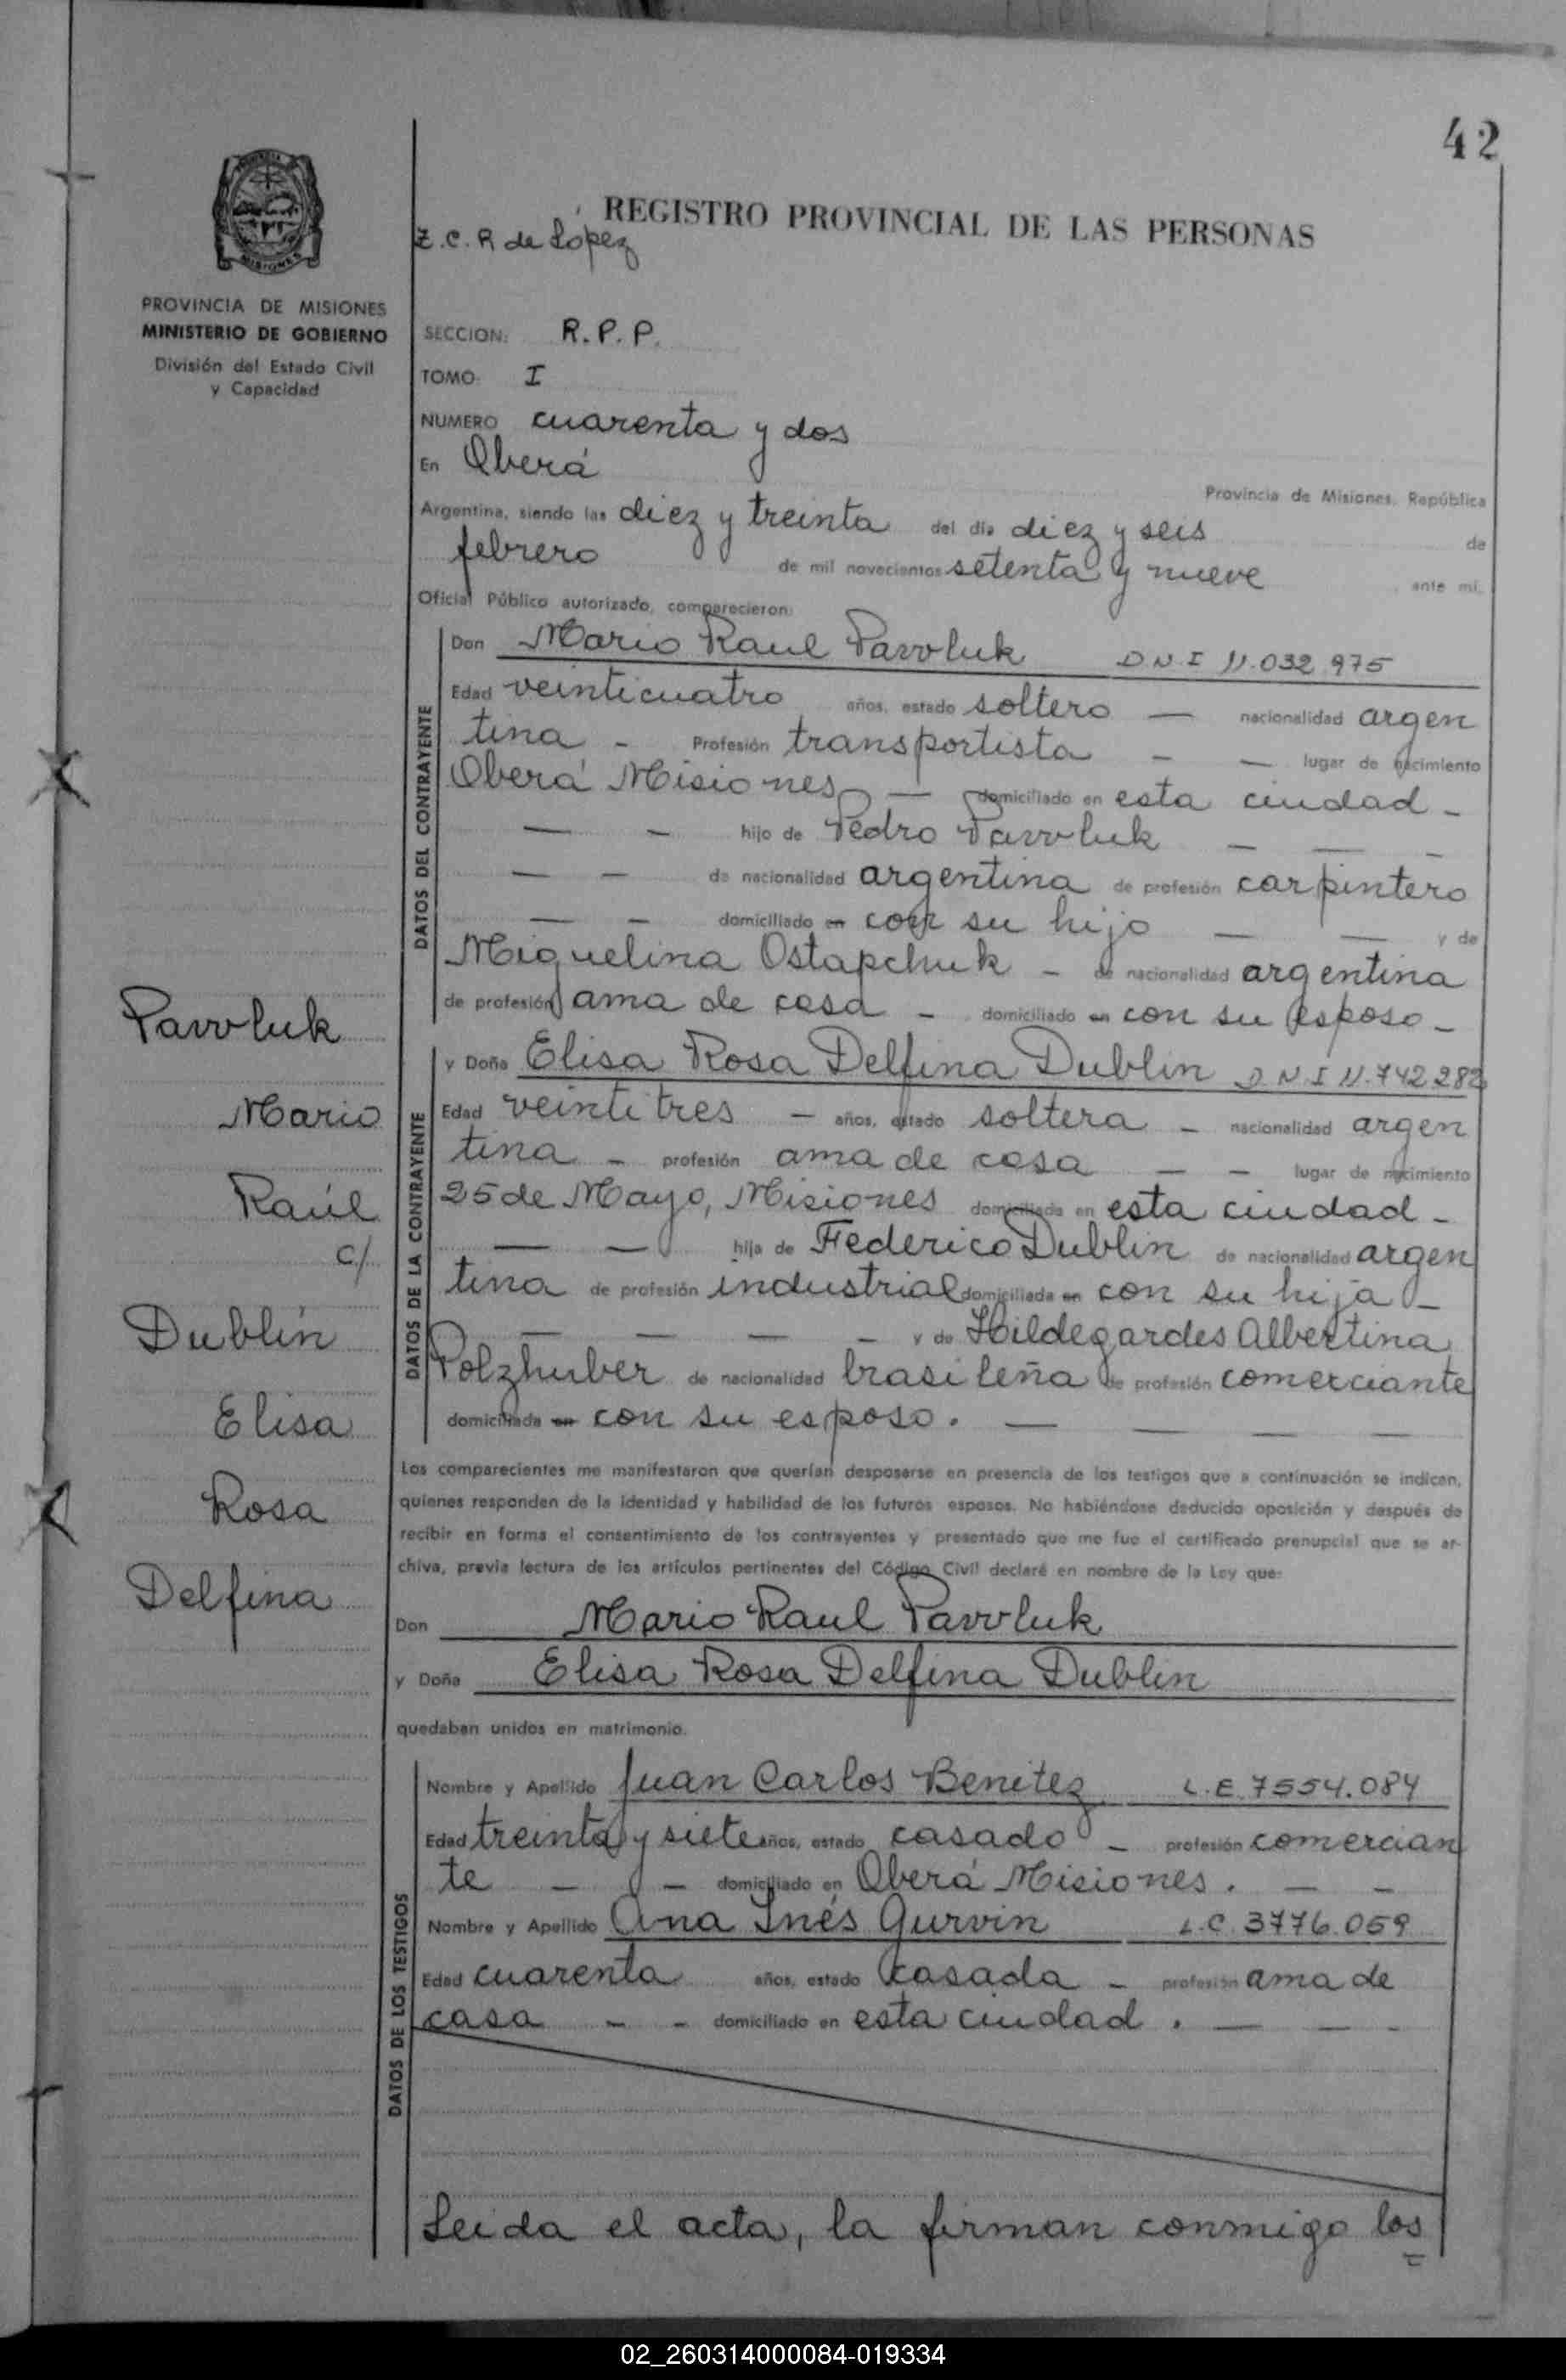 42
REGISTRO PROVINCIAL DE LAS PERSONAS
Z.C.R de López
PROVINCIA DE MISIONES
MINISTERIO DE GOBIERNO
División del Estado Civil
y Capacidad
SECCION: R.P.P.
TOMO: I
NUMERO cuarenta y dos
En Oberá
Provincia de Misiones, República
Argentina, siendo las diez y treinta del día diez y seis de
febrero de mil novecientos setenta y nueve ante mí,
Oficial Público autorizado, comparecieron:
DATOS DEL CONTRAYENTE
Don Mario Raul Pavvluk D.N.I 11.032.975
Edad veinticuatro años, estado soltero — nacionalidad argen
tina - Profesión transportista - — lugar de nacimiento
Oberá Misiones — domiciliado en esta ciudad -
— - hijo de Pedro Pavvluk - — -
— - de nacionalidad argentina de profesión carpintero
— - domiciliado en con su hijo — — y de
Miquelina Ostapchuk - de nacionalidad argentina
de profesión ama de casa - domiciliado en con su esposo -
DATOS DE LA CONTRAYENTE
y Doña Elisa Rosa Delfina Dublin D.N.I 11.742.282
Edad veintitres - años, estado soltera - nacionalidad argen
tina - profesión ama de casa — - lugar de nacimiento
25 de Mayo, Misiones domiciliada en esta ciudad -
— — hija de Federico Dublin de nacionalidad argen
tina de profesión industrial domiciliada en con su hija -
— — — - y de Hildegardes Albertina
Polzhuber de nacionalidad brasileña de profesión comerciante
domiciliada en con su esposo. — — — —
Pavvluk
Mario
Raúl
c/
Dublín
Elisa
Rosa
Delfina
Los comparecientes me manifestaron que querían desposarse en presencia de los testigos que a continuación se indican,
quienes responden de la identidad y habilidad de los futuros esposos. No habiéndose deducido oposición y después de
recibir en forma el consentimiento de los contrayentes y presentado que me fue el certificado prenupcial que se ar-
chiva, previa lectura de los artículos pertinentes del Código Civil declaré en nombre de la Ley que:
Don Mario Raul Pavvluk
y Doña Elisa Rosa Delfina Dublin
quedaban unidos en matrimonio.
DATOS DE LOS TESTIGOS
Nombre y Apellido Juan Carlos Benitez L.E. 7554.084
Edad treinta y siete años, estado casado - profesión comercian
te - - domiciliado en Oberá Misiones. — -
Nombre y Apellido Ana Inés Gurvin L.C. 3776.059
Edad cuarenta años, estado casada - profesión ama de
casa - - domiciliado en esta ciudad. — — -
Leida el acta, la firman conmigo los
02_260314000084-019334